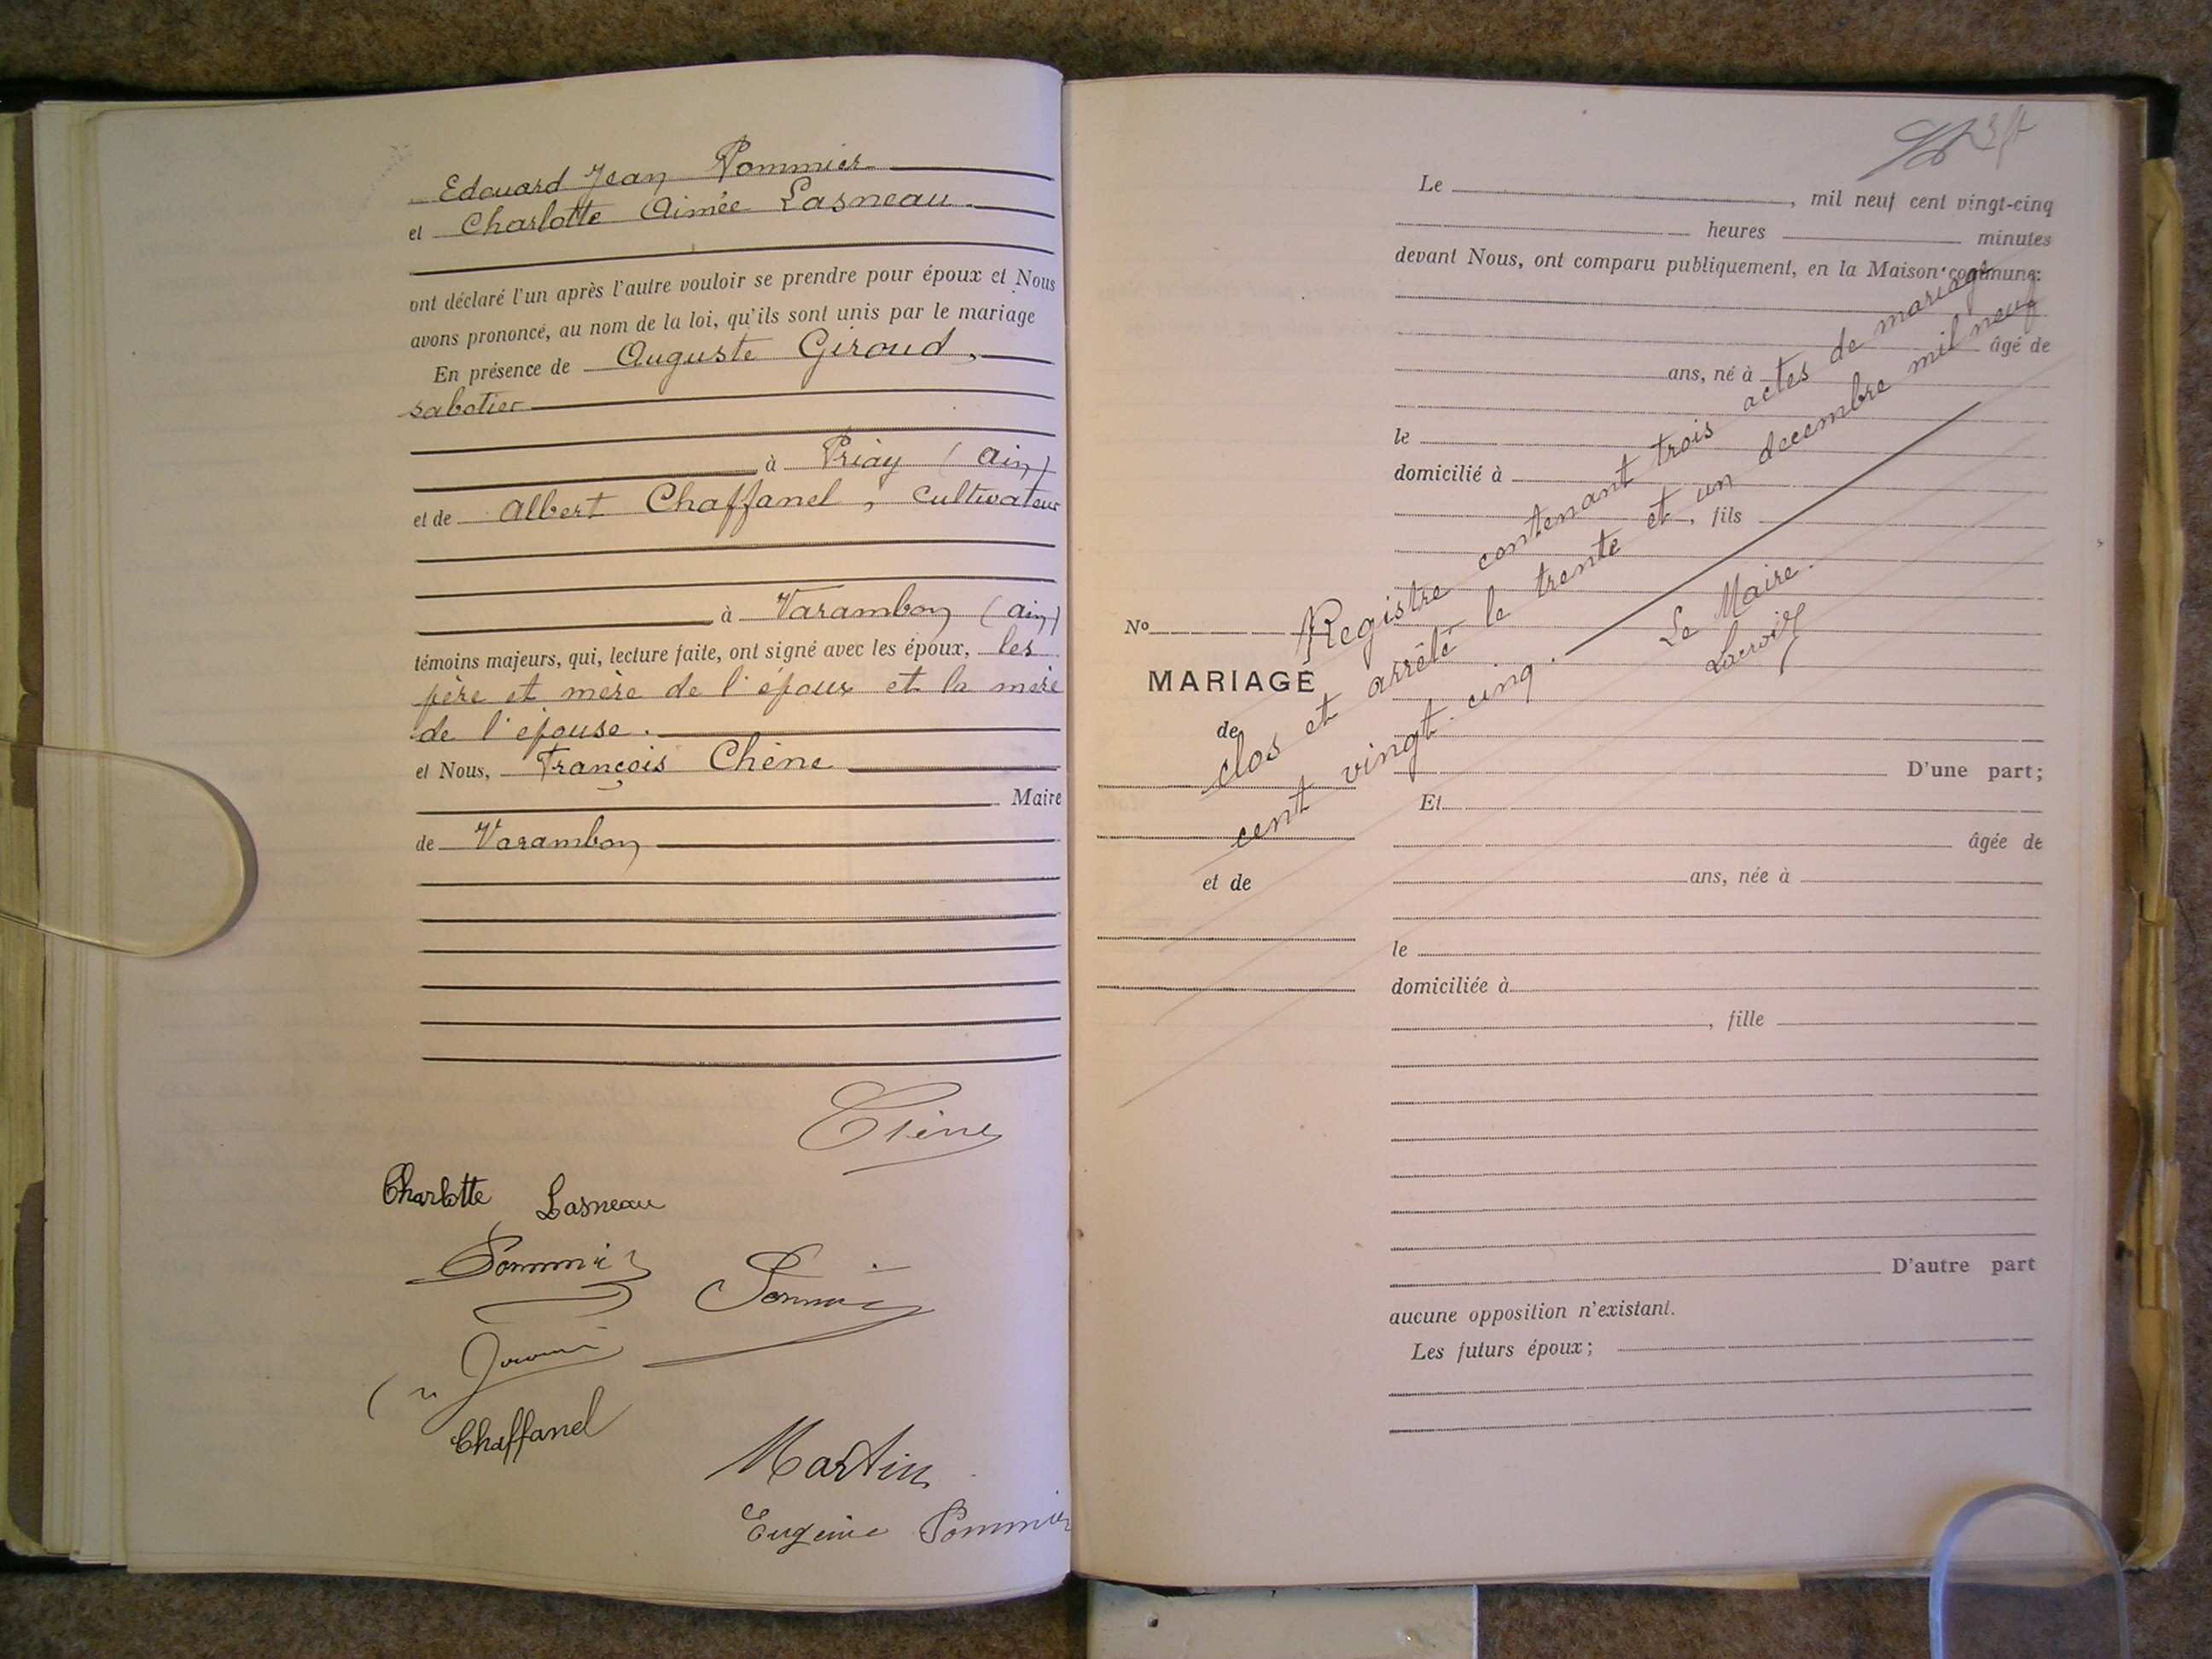 Edouard Jean Pommier
et Charlotte Aimée Lasneau
ont déclaré l'un après l'autre vouloir se prendre pour époux et Nous
avons prononcé, au nom de la loi, qu'ils sont unis par le mariage
En présence de Auguste Giroud,
sabotier
à Priay (Ain)
et de Albert Chaffanel, cultivateur
à Varambon (Ain)
témoins majeurs, qui, lecture faite, ont signé avec les époux, les
père et mère de l'époux et la mère
de l'épouse.
et Nous, François Chêne
Maire
de Varambon
Chêne
Charlotte Lasneau
Pommier
Pommier
Chaffanel
Martin
Eugénie Pommier
Le , mil neuf cent vingt-cinq
heures minutes
devant Nous, ont comparu publiquement, en la Maison commune:
âgé de
ans, né à
le
domicilié à
, fils
D'une part;
Et
âgée de
ans, née à
le
domiciliée à
, fille
D'autre part
aucune opposition n'existant.
Les futurs époux;
No
MARIAGE
de
et de
Registre contenant trois actes de mariage
clos et arrêté le trente et un decembre mil neuf
cent vingt-cinq.
Le Maire.
Lacroix